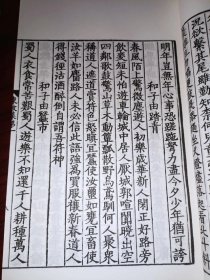 況欲繫其尾雖勤知奈何
起看北斗
明年豈無年心事恐蹉跎努力盡今夕少年猶可誇
和子由踏青
春風陌上驚微塵遊人初樂歲華新人閑正好路旁
飲麥短未怕遊車輪城中居人厭城郭喧闐曉出空
四鄰歌鼓驚山草木動簞瓢散野烏鳶馴何人聚衆
稱道人遮道賣符色怒瞋宜蠶使汝繭如甕宜畜使
汝羊如麕路人未必信此語強爲買服禳新春道人
得錢徑沽酒醉倒自謂吾符神
和子由蠶市
蜀人衣食常苦艱蜀人遊樂不知還千人耕種萬人